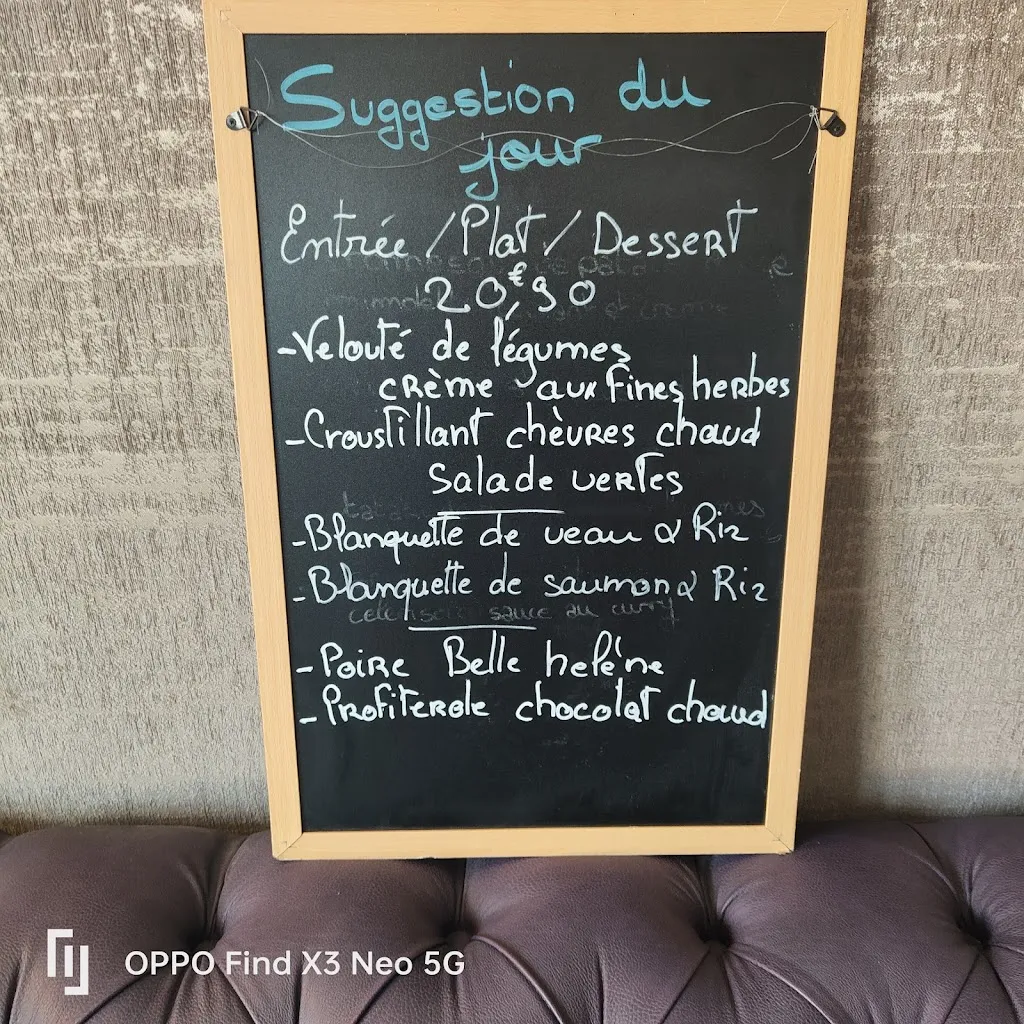 Suggestion du
jour
Entrée / Plat / Dessert
20€,90
- Velouté de légumes
crème aux fines herbes
- Croustillant chèvres chaud
Salade vertes
- Blanquette de veau & Riz
- Blanquette de saumon & Riz
sauce au curry
- Poire Belle heléne
- Profiterole chocolat chaud
OPPO Find X3 Neo 5G